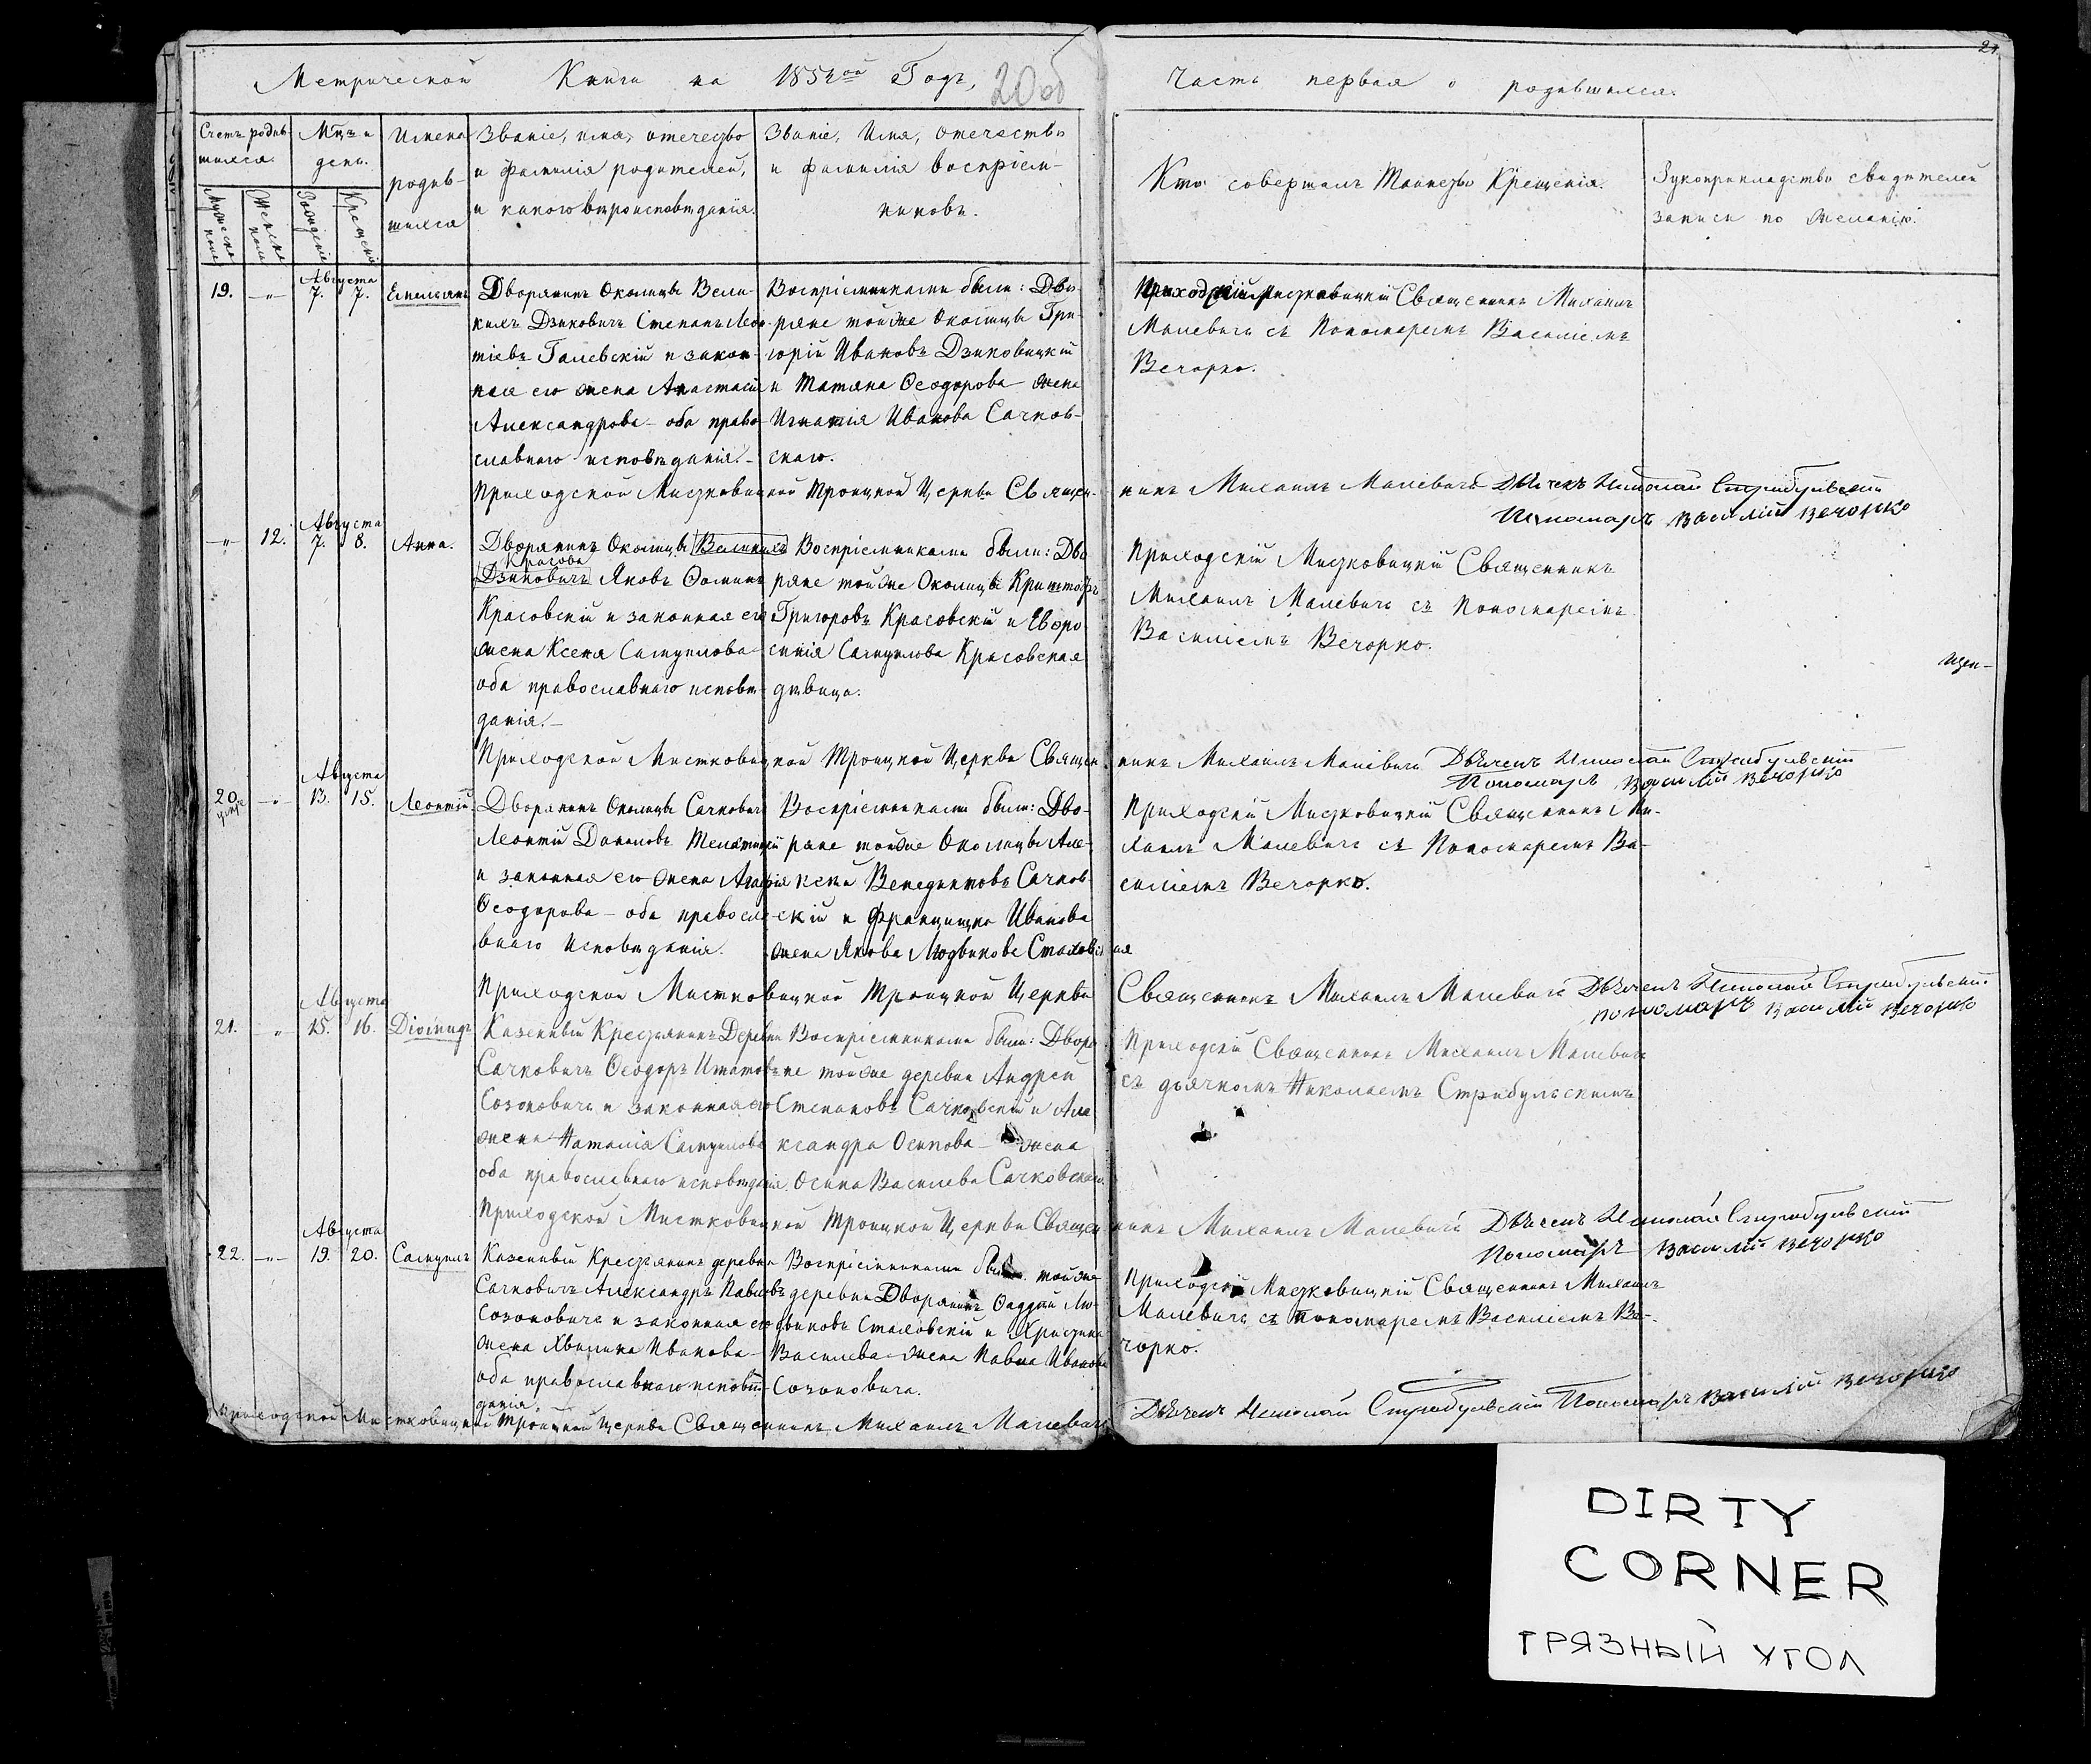 Метрической Книги на 1852ой Годъ, 20об
Часть первая о родившихся.
21
Счетъ родив-
шихся.
Мужеска
пола
Женска
пола
Мц̃ъ и
день.
Рожденія
Крещенія
Имена
родив-
шихся
Званіе, имя, отечество
и фамилія родителей,
и какого вѣроисповѣданія.
Званіе, Имя, отечество
и фамилія воспріем-
никовъ.
Кто совершалъ Таинство Крещенія.
Рукоприкладство свидѣтелей
записи по желанію.
19. — Августа 7. 7. Емельянъ
Дворянинъ Околицы Вели-
кихъ Дзиковичъ Степанъ Леон-
тіевъ Галевскій и закон-
ная его жена Анастасія
Александрова — оба право-
славнаго исповѣданія. —
Воспріемниками были: Дво-
ряне тойже Околицы Гри-
горій Ивановъ Дзиковицкій
и Татяна Ѳеодорова — жена
Игнатія Иванова Сачков-
скаго.
Приходскій Мистковицкій Священникъ Михаилъ
Малевичъ съ Пономаремъ Василіемъ
Вечорко.
Приходской Мистковицкой Троицкой Церкви Священ-
никъ Михаилъ Малевичъ Дьячекъ Николай Стрибульскій
Пономарь Василій Вечорко
— 12. Августа 7. 8. Анна.
Дворянинъ Околицы Великихъ
Красова
Дзиковичъ Яковъ Ѳоминъ
Красовскій и законная его
жена Ксенія Самуилова
оба православнаго исповѣ-
данія. —
Воспріемниками были: Дво-
ряне тойже Околицы Криштофъ
Григоровъ Красовскій и Евфро-
синія Самуилова Красовская
дѣвица.
Приходскій Мистковицкій Священникъ
Михаилъ Малевичъ съ Пономаремъ
Василіемъ Вечорко.
щен-
Приходской Мистковицкой Троицкой Церкви Священ-
никъ Михаилъ Малевичъ Дьячекъ Николай Стрибульскій
Пономарь Василій Вечорко
20. — Августа 13. 15. Леонтій
Дворянинъ Околицы Сачковичъ
Леонтій Даниловъ Телятицкій
и законная его жена Агафія
Ѳеодорова — оба правосла-
внаго Исповѣданія.
Воспріемниками были: Дво-
ряне тойже Околицы Але-
ксей Венедиктовъ Сачков-
скій и Францишка Иванова
жена Якова Людвикова Стаховская
Приходскій Мистковицкій Священникъ Ми-
хаилъ Малевичъ съ Пономаремъ Ва-
силіемъ Вечорко.
Приходской Мистковицкой Троицкой Церкви
Священникъ Михаилъ Малевичъ Дьячекъ Николай Стрибульскій
пономарь Василій Вечорко
21. „ Августа 15. 16. Діомидъ
Казенный Крестьянинъ Деревни
Сачковичъ Ѳеодоръ Игнатовъ
Созоновичъ и законная его
жена Наталія Самуилова
оба православнаго исповѣданія.
Воспріемниками были: Дворя-
не тойже деревни Андрей
Степановъ Сачковскій и Але-
ксандра Осипова — жена
Осипа Василева Сачковскаго.
Приходскій Священникъ Михаилъ Малевичъ
съ дьячкомъ Николаемъ Стрибульскимъ
Приходской Мистковицкой Троицкой Церкви Священ-
никъ Михаилъ Малевичъ Дьячекъ Николай Стрибульскій
Пономарь Василій Вечорко
22. — Августа 19. 20. Самуилъ
Казенный Крестьянинъ деревни
Сачковичъ Александръ Павловъ
Созоновичъ и законная его
жена Хвалина Иванова —
оба православнаго исповѣ-
данія.
Воспріемниками были тойже
деревни Дворянинъ Ѳаддей Лю-
двиковъ Стаховскій и Христина
Василева — жена Павла Иванова
Созоновича.
Приходскій Мистковицкій Священникъ Михаилъ
Малевичъ съ пономаремъ Василіемъ Ве-
чорко.
Приходской Мистковицкой Троицкой Церкви Священникъ Михаилъ Малевичъ
Дьячекъ Николай Стрибульскій Пономарь Василій Вечорко
DIRTY
CORNER
ГРЯЗНЫЙ УГОЛ